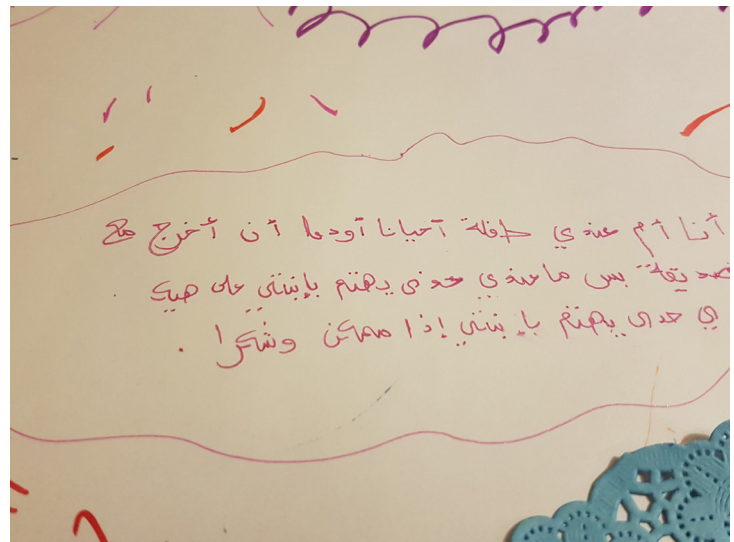 أنا أم عندي طفلة أحيانا أود أن أخرج مع
صديقة بس ما عندي حدى يهتم بإبنتي على هيك
ي حدى يهتم بإبنتي إذا ممكن وشكرا .